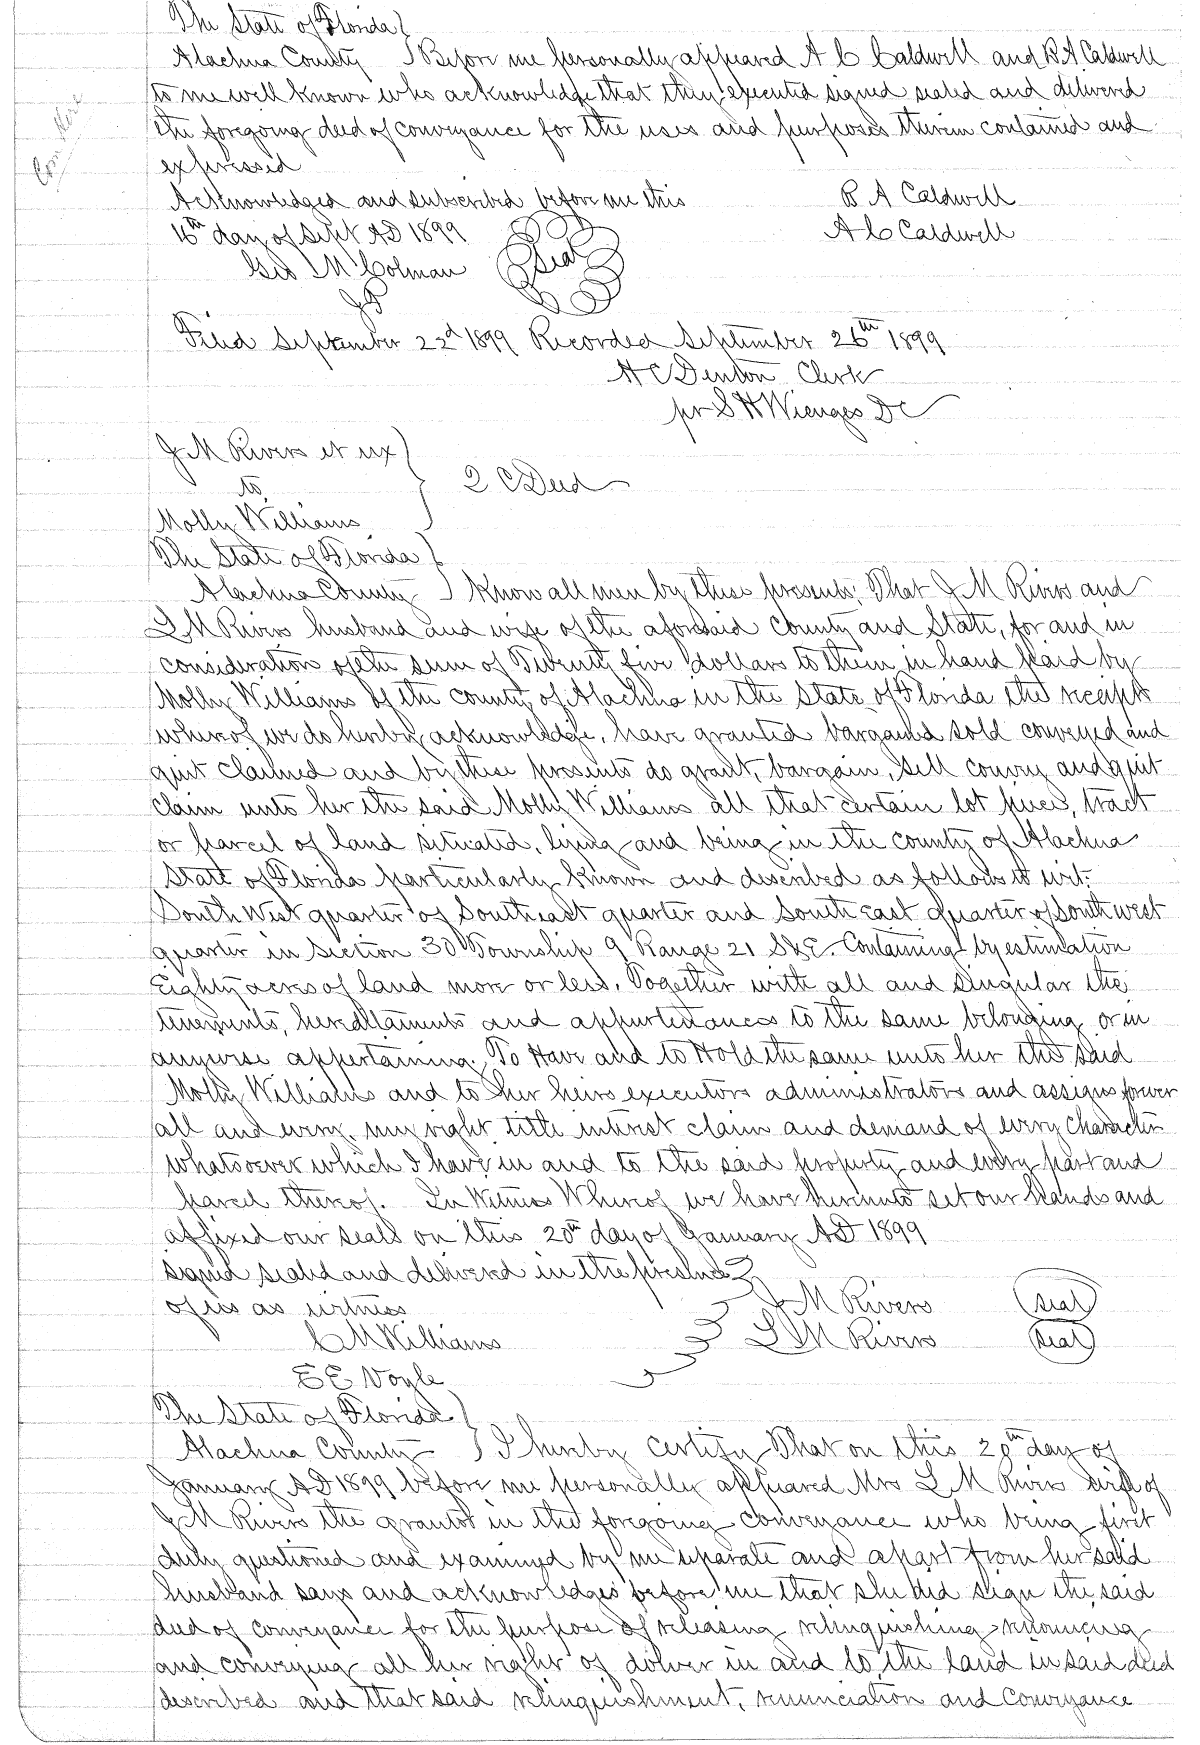 The State of Florida
Alachua County Before me personally appeared A C Caldwell and B A Caldwell
to me well known who acknowledge that they executed signed sealed and delivered
the foregoing deed of conveyance for the uses and purposes therein contained and
expressed
Acknowledged and subscribed before me this B A Caldwell
16th day of Sept AD 1899 A C Caldwell
Geo M Colman Seal
JP
Filed September 22d 1899 Recorded September 26th 1899
H C Denton Clerk
pr S H Wienges DC
J M Rivers et ux
to 2 C Deed
Molly Williams
The State of Florida
Alachua County Know all men by these presents, That J M Rivers and
L M Rivers husband and wife of the aforesaid County and State, for and in
consideration of the sum of Twenty five dollars to them in hand paid by
Molly Williams of the county of Alachua in the State of Florida the receipt
whereof we do hereby acknowledge, have granted bargained sold conveyed and
quit claimed and by these presents do grant, bargain, sell convey and quit
claim unto her the said Molly Williams all that certain lot piece, tract
or parcel of land situated, lying and being in the county of Alachua
State of Florida particularly known and described as follows to wit:
South West quarter of South east quarter and South East quarter of South west
quarter in Section 30 Township 9 Range 21 S&E. Containing by estimation
Eighty acres of land more or less. Together with all and singular the
tenements, hereditaments and appurtenances to the same belonging or in
anywise appertaining. To Have and to Hold the same unto her the said
Molly Williams and to her heirs executors administrators and assigns forever
all and every, my right title interest claim and demand of every character
whatsoever which I have in and to the said property and every part and
parcel thereof. In Witness Whereof we have hereunto set our hands and
affixed our seals on this 20th day of January AD 1899
signed sealed and delivered in the presence
of us as witness J M Rivers seal
C M Williams L M Rivers seal
E E Voyle
The State of Florida
Alachua County I hereby certify That on this 20th day of
January AD 1899 before me personally appeared Mrs L M Rivers wife of
J M Rivers the grantor in the foregoing conveyance who being first
duly questioned and examined by me separate and apart from her said
husband says and acknowledges before me that she did sign the said
deed of conveyance for the purpose of releasing relinquishing renouncing
and conveying all her right of dower in and to the land in said deed
described and that said relinquishment, renunciation and conveyance